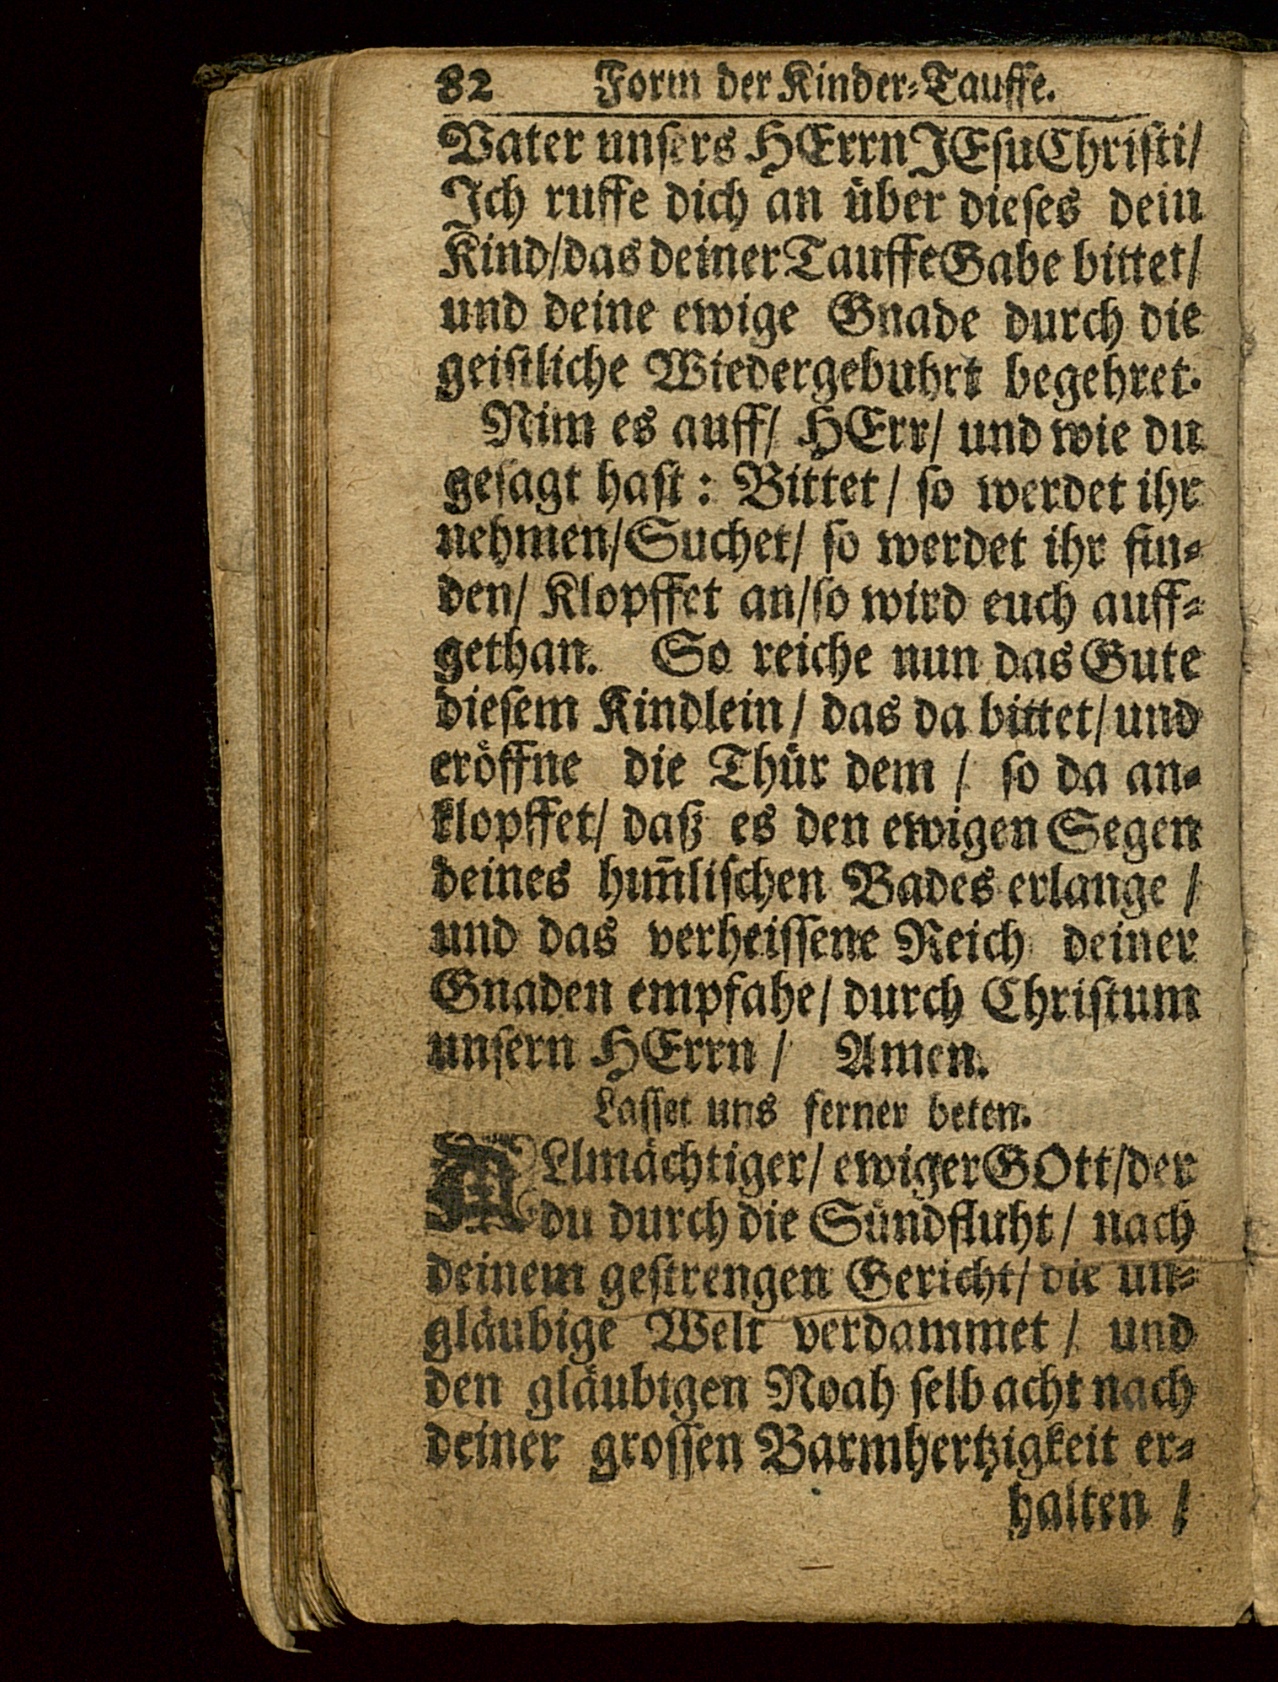 82 Form der Kinder-Tauffe.
Vater unsers HErrn JEsu Christi/
Ich ruffe dich an über dieses dein
Kind/das deiner Tauffe Gabe bittet/
und deine ewige Gnade durch die
geistliche Wiedergebuhrt begehret.
Nim es auff/ HErr/ und wie du
gesagt hast: Bittet/ so werdet ihr
nehmen/Suchet/ so werdet ihr fin-
den/ Klopffet an/so wird euch auff-
gethan. So reiche nun das Gute
diesem Kindlein/ das da bittet/und
eröffne die Thür dem / so da an-
klopffet/ daß es den ewigen Segen
deines him̄lischen Bades erlange /
und das verheissene Reich deiner
Gnaden empfahe/ durch Christum
unsern HErrn / Amen.
Lasset uns ferner beten.
ALlmächtiger/ ewiger GOtt/der
du durch die Sündfluht/ nach
deinem gestrengen Gericht/ die un-
gläubige Welt verdammet / und
den gläubigen Noah selb acht nach
deiner grossen Barmhertzigkeit er-
halten /